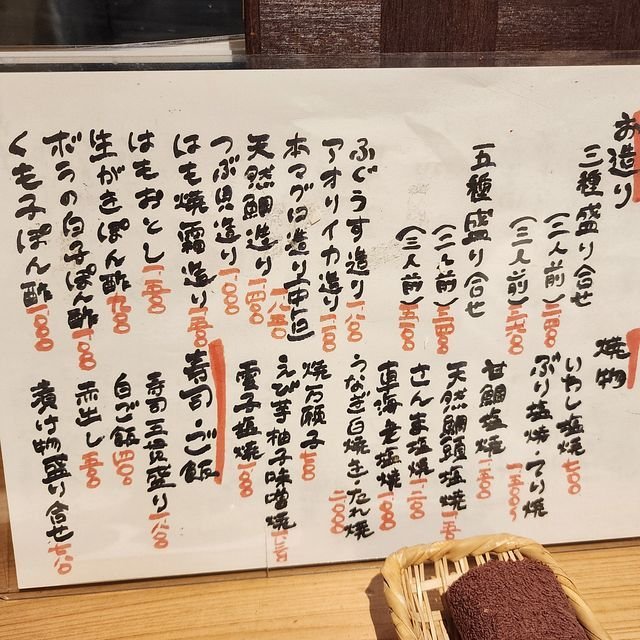 お造り
三種盛り合せ
(二人前) 二四〇〇
(三人前) 三六〇〇
五種盛り合せ
(二人前) 三四〇〇
(三人前) 五一〇〇
ふぐうす造り 一八〇〇
アオリイカ造り 一二〇〇
本マグロ造り(中トロ) 一八五〇
天然鯛造り 一四〇〇
つぶ貝造り 一〇〇〇
はも焼霜造り 一五〇〇
はもおとし 一五〇〇
生がきぽん酢 九〇〇
ボラの白子ぽん酢 一〇〇〇
くも子ぽん酢 一〇〇〇
焼物
いわし塩焼 七〇〇
ぶり塩焼・てり焼 一五〇〇
甘鯛塩焼 一五〇〇
天然鯛頭塩焼
さんま塩焼 一二〇〇
車海老塩焼 一八〇〇
うなぎ白焼き・たれ焼 二八〇〇
焼万願子 七〇〇
えび芋柚子味噌焼
雲子塩焼 一八〇〇
寿司・ご飯
寿司五貫盛り 一八〇〇
白ご飯 四〇〇
赤出し 五〇〇
漬け物盛り合せ 七八〇